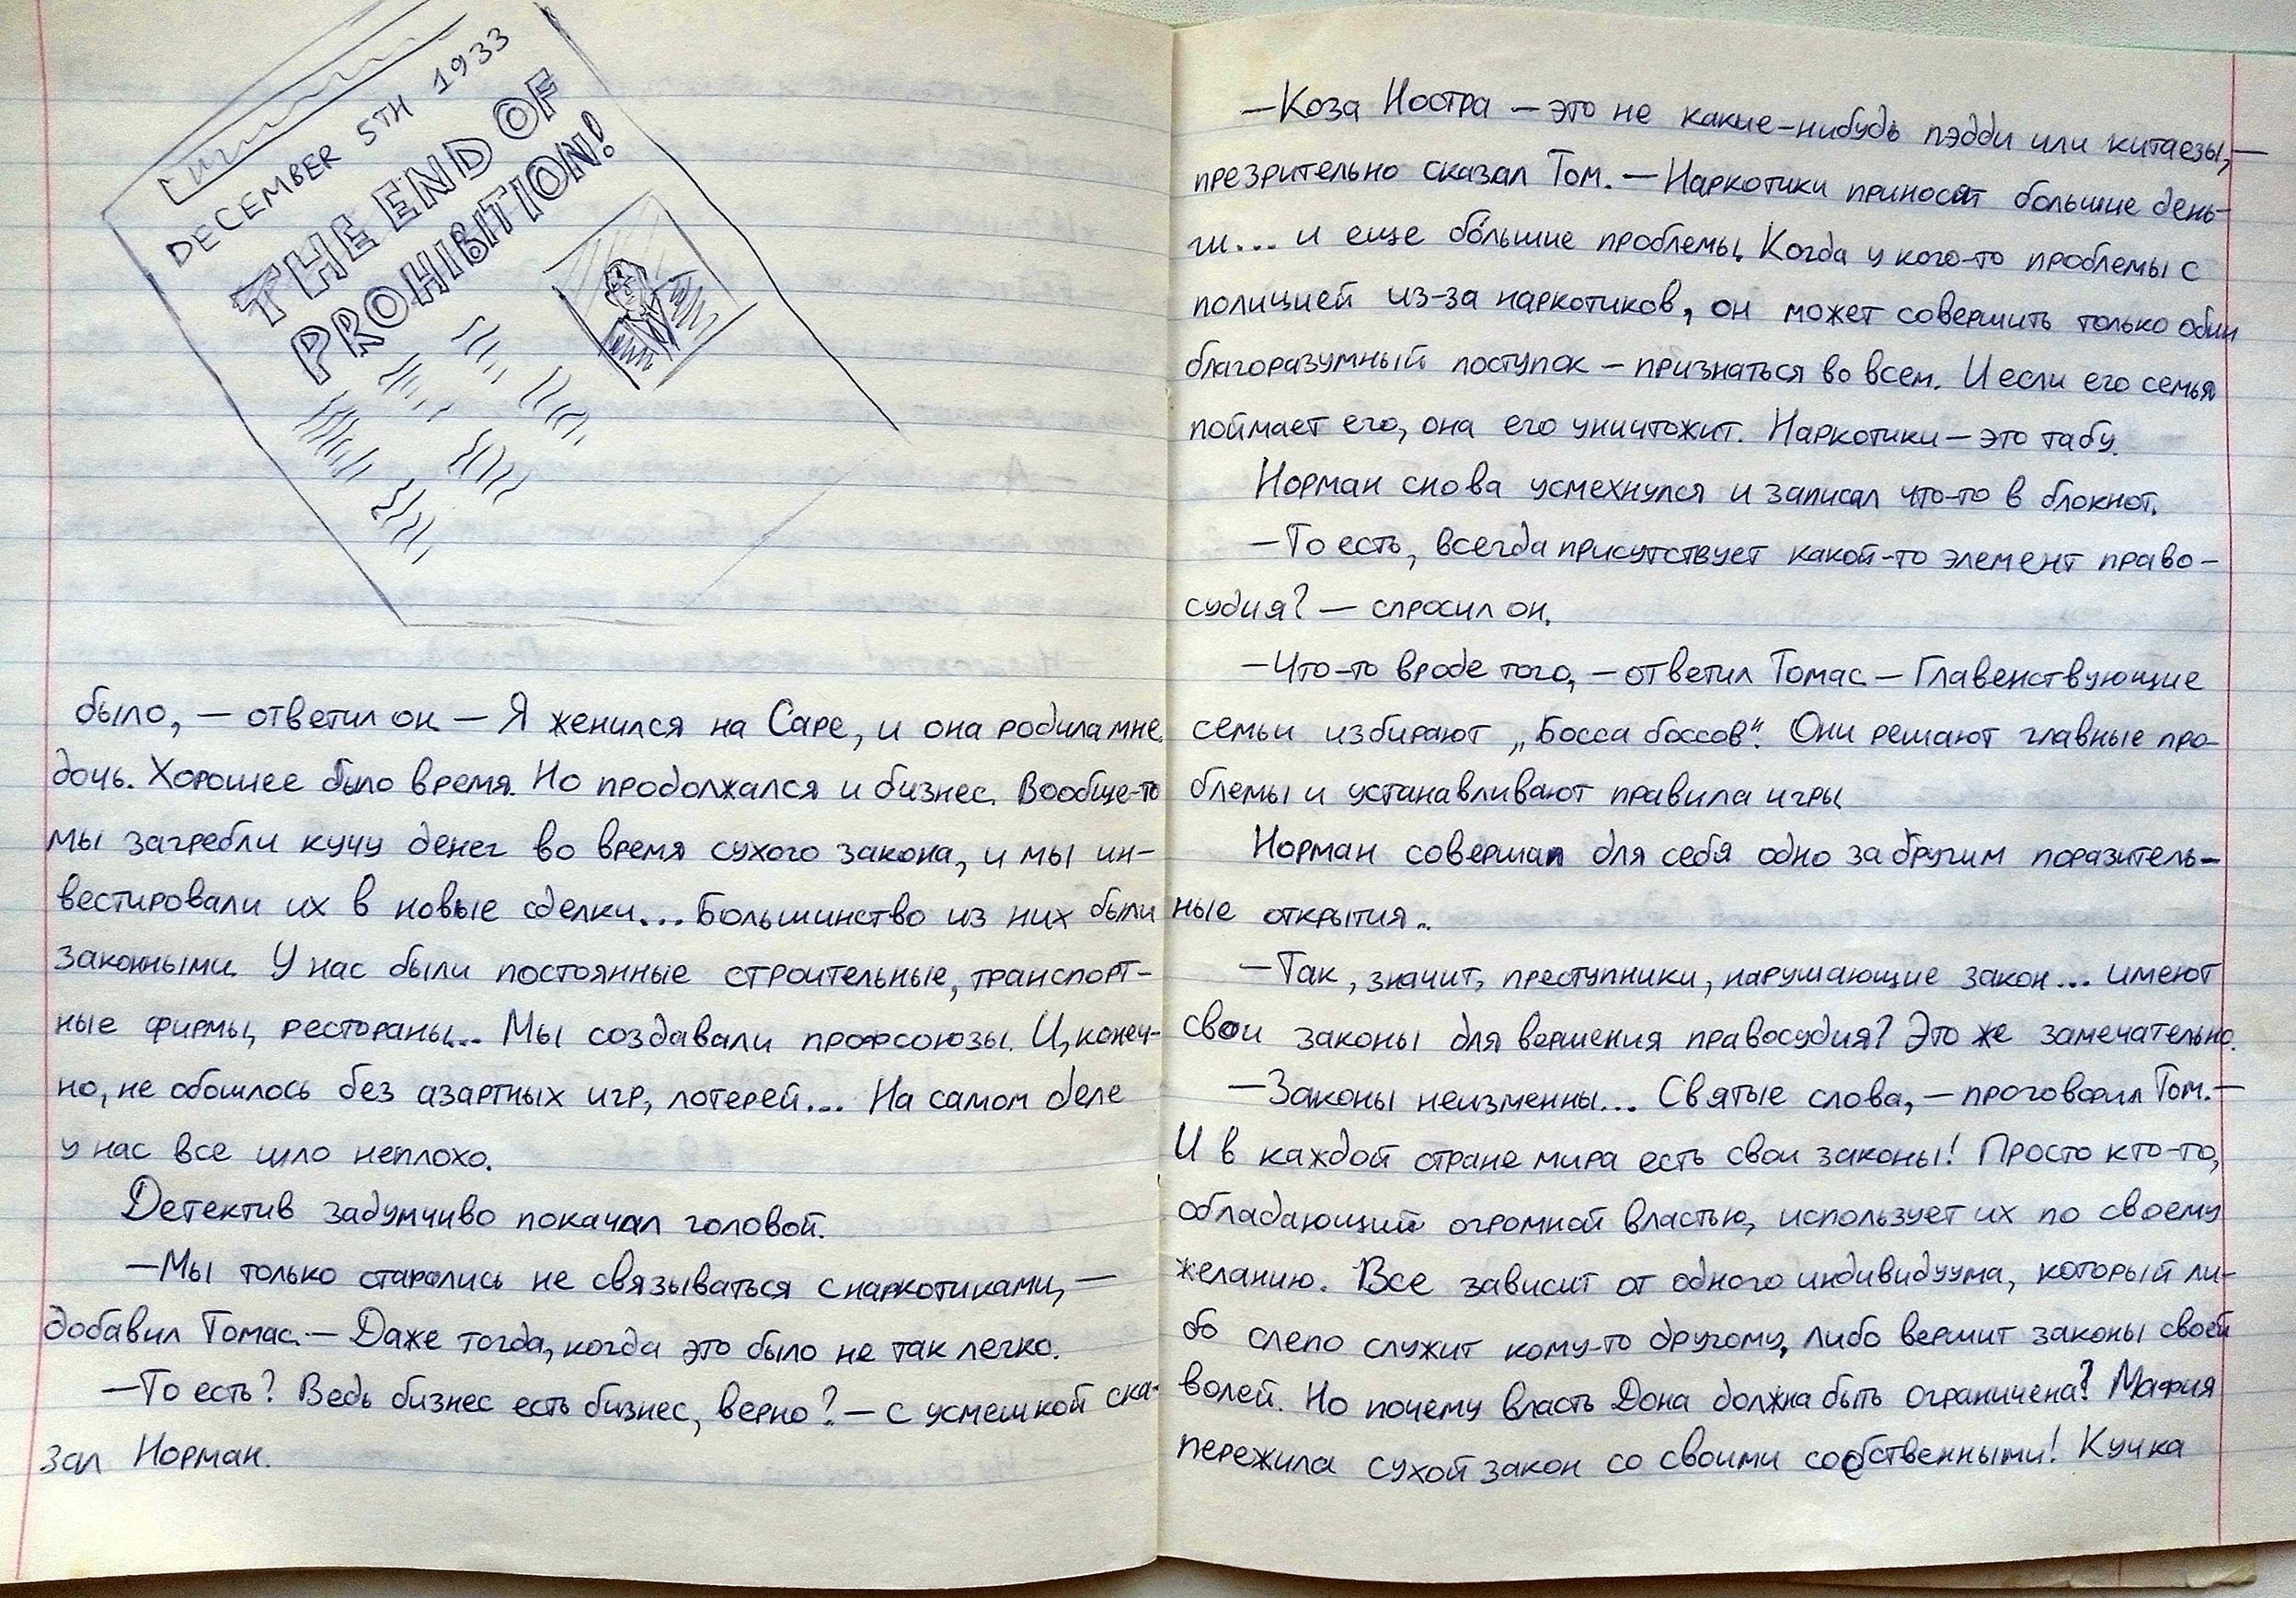 DECEMBER 5TH 1933
THE END OF
PROHIBITION!
было, — ответил он — Я женился на Саре, и она родила мне
дочь. Хорошее было время. Но продолжался и бизнес. Вообще-то
мы загребли кучу денег во время сухого закона, и мы ин-
вестировали их в новые сделки... Большинство из них были
законными. У нас были постоянные строительные, транспорт-
ные фирмы, рестораны... Мы создавали профсоюзы. И, конеч-
но, не обошлось без азартных игр, лотерей... На самом деле
у нас все шло неплохо.
Детектив задумчиво покачал головой.
—Мы только старались не связываться с наркотиками, —
добавил Томас. — Даже тогда, когда это было не так легко.
—То есть? Ведь бизнес есть бизнес, верно? — с усмешкой ска-
зал Норман.
—Коза Ностра — это не какие-нибудь пэдди или китаезы, —
презрительно сказал Том. — Наркотики приносят большие день-
ги... и еще бо́льшие проблемы. Когда у кого-то проблемы с
полицией из-за наркотиков, он может совершить только один
благоразумный поступок — признаться во всем. И если его семья
поймает его, она его уничтожит. Наркотики — это табу.
Норман снова усмехнулся и записал что-то в блокнот.
—То есть, всегда присутствует какой-то элемент право-
судия? — спросил он.
—Что-то вроде того, — ответил Томас — Главенствующие
семьи избирают „Босса боссов“. Они решают главные про-
блемы и устанавливают правила игры.
Норман совершал для себя одно за другим поразитель-
ные открытия..
—Так, значит, преступники, нарушающие закон... имеют
свои законы для вершения правосудия? Это же замечательно.
—Законы неизменны... Святые слова, — проговорил Том. —
И в каждой стране мира есть свои законы! Просто кто-то,
обладающий огромной властью, использует их по своему
желанию. Все зависит от одного индивидуума, который ли-
бо слепо служит кому-то другому, либо вершит законы своей
волей. Но почему власть Дона должна быть ограничена? Мафия
пережила сухой закон со своими собственными! Кучка